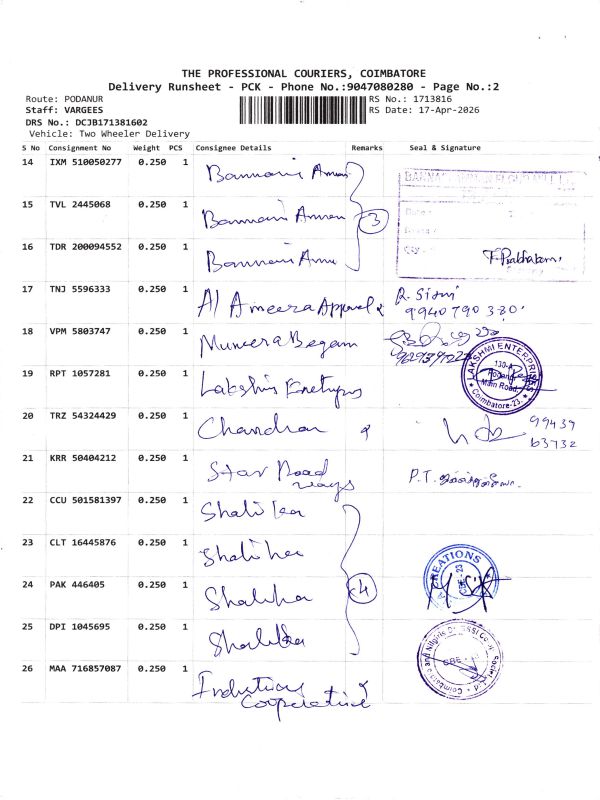 THE PROFESSIONAL COURIERS, COIMBATORE
Delivery Runsheet - PCK - Phone No.:9047080280 - Page No.:2
Route: PODANUR
RS No.: 1713816
Staff: VARGEES
RS Date: 17-Apr-2026
DRS No.: DCJB171381602
Vehicle: Two Wheeler Delivery
S No Consignment No Weight PCS Consignee Details Remarks Seal & Signature
14 IXM 510050277 0.250 1 Bannari Amman
15 TVL 2445068 0.250 1 Bannari Amman 3
16 TDR 200094552 0.250 1 Bannari Amm F. Prabhakaran
17 TNJ 5596333 0.250 1 Al Ameera Apparel R. Sisni
9940790380
18 VPM 5803747 0.250 1 Muneera Begam
19 RPT 1057281 0.250 1 Lakshmi Enterprises LAKSHMI ENTERPRISES
130-A
Podanur
Main Road,
Coimbatore-23.
20 TRZ 54324429 0.250 1 Chandran 99439
63732
21 KRR 50404212 0.250 1 Star Road
ways
P.T.
22 CCU 501581397 0.250 1 Shalihaa
23 CLT 16445876 0.250 1 Shaliha CREATIONS
CBE-23
24 PAK 446405 0.250 1 Shaliha 4
25 DPI 1045695 0.250 1 Shaliha
26 MAA 716857087 0.250 1 Industrial
Cooperative
Coimbatore and Nilgiris
CBE